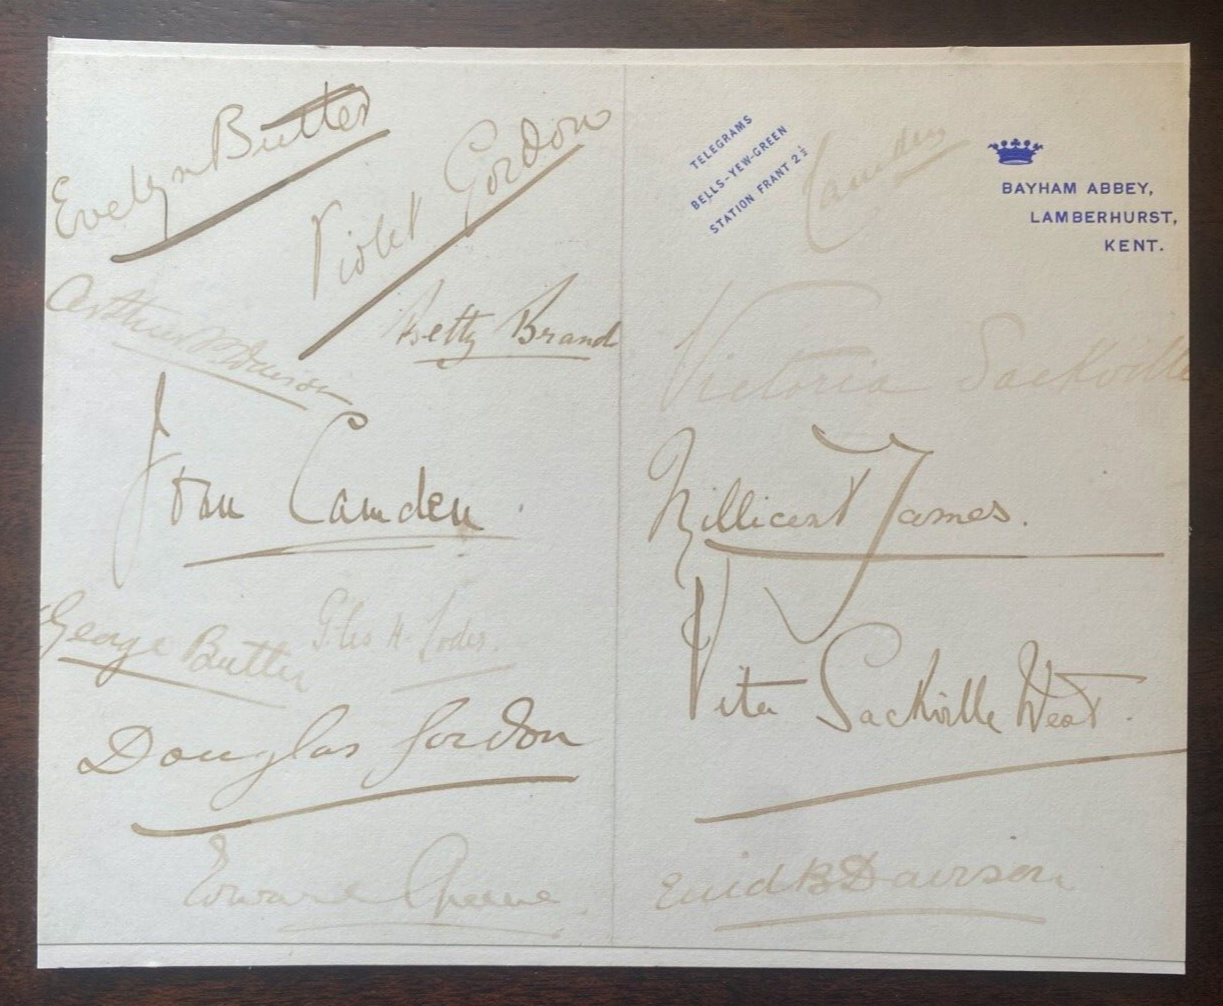 Evelyn Butler
Violet Gordon
Betty Brand
Joan Camden
George Butler
Giles H. Loder.
Douglas Gordon
Edward
TELEGRAMS
BELLS-YEW-GREEN
STATION FRANT 2½
Camden
BAYHAM ABBEY,
LAMBERHURST,
KENT.
Victoria Sackville
Millicent James.
Vita Sackville West.
Enid B Davison
Arthur Davison